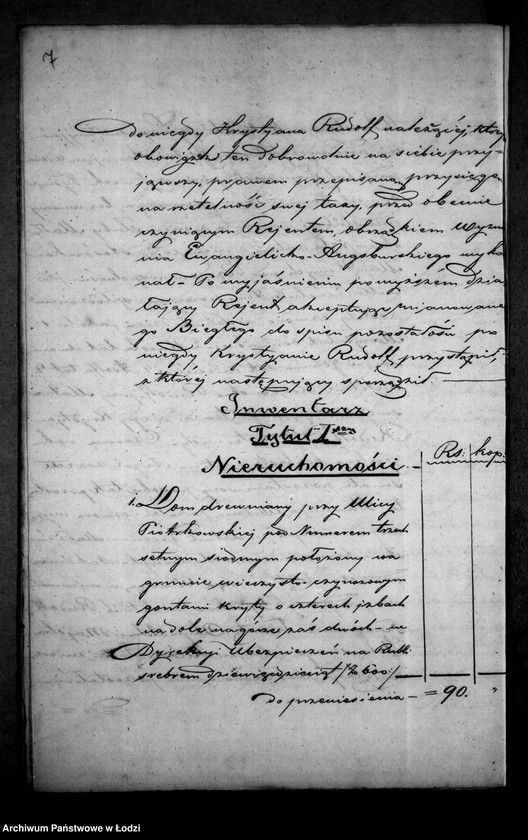 7
do niegdy Krystyana Rudolf należącéj, który
obowiązek ten dobrowolnie na siebie przy-
jąwszy, prawem przepisaną przysięgę
na rzetelność swej taxy, przed obecnie
czyniącym Rejentem, obrządkiem Wyzna
nia Ewangielicko-Augsburskiego wyko
nał. Po wyjaśnieniu powyższem dzia
łający Rejent akceptując mianowane
go Biegłego do spisu pozostałości po
niegdy Krystyanie Rudolf, przystąpił,
z której następujący sporządził.
Inwentarz
Tytuł I
Nieruchomości.
Rs: kop:
1. Dom drewniany przy Ulicy
Piotrkowskiej pod Numerem trzech
setnym siódmym położony na
gruncie wieczysto-czynszowym
gontami kryty o czterech izbach
na dole na górze zaś dwóch - w
Dyrekcyi Ubezpieczeń na Rubli
srebrem dziewięćdziesiąt
do przeniesienia = 90. "
Archiwum Państwowe w Łodzi